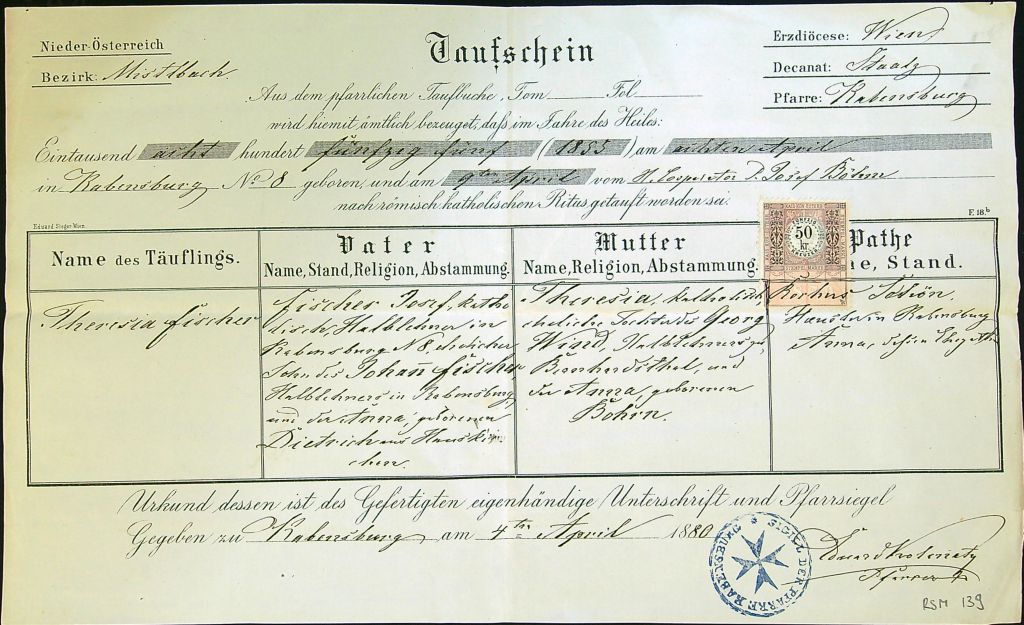 Nieder-Österreich
Bezirk: Mistlbach.
Taufschein
Erzdiöcese: Wien
Decanat: Staatz
Pfarre: Rabensburg
Aus dem pfarrlichen Taufbuche, Tom Fol
wird hiemit ämtlich bezeuget, daß im Jahre des Heiles:
Eintausend acht hundert fünfzig fünf (1855) am achten April
in Rabensburg No 8 geboren, und am 9ten April vom P. Josef Böhm
nach römisch katholischen Ritus getauft worden sei.
Eduard Sieger Wien
F. 18.b
50
kr.
Name des Täuflings.
Vater
Name, Stand, Religion, Abstammung.
Mutter
Name, Religion, Abstammung.
Pathe
e, Stand.
Theresia Fischer
Fischer Josef, katho
lisch, Halblehner in
Rabensburg N 8, ehelicher
Sohn des Johann Fischer
Halblehners in Rabensburg
und der Anna, geborenen
Dietrich aus Hauskir
chen.
Theresia, katholisch
eheliche Tochter des Georg
Wind, Halblehners zu
Bernhardsthal, und
der Anna, geborenen
Böhm.
Rochus Schön.
in Rabensburg
Anna, dessen
Urkund dessen ist des Gefertigten eigenhändige Unterschrift und Pfarrsiegel
Gegeben zu Rabensburg am 4ten April 1880
SIGILL DER PFARRE RABENSBURG
Eduard
Pfarrer
RSM 139